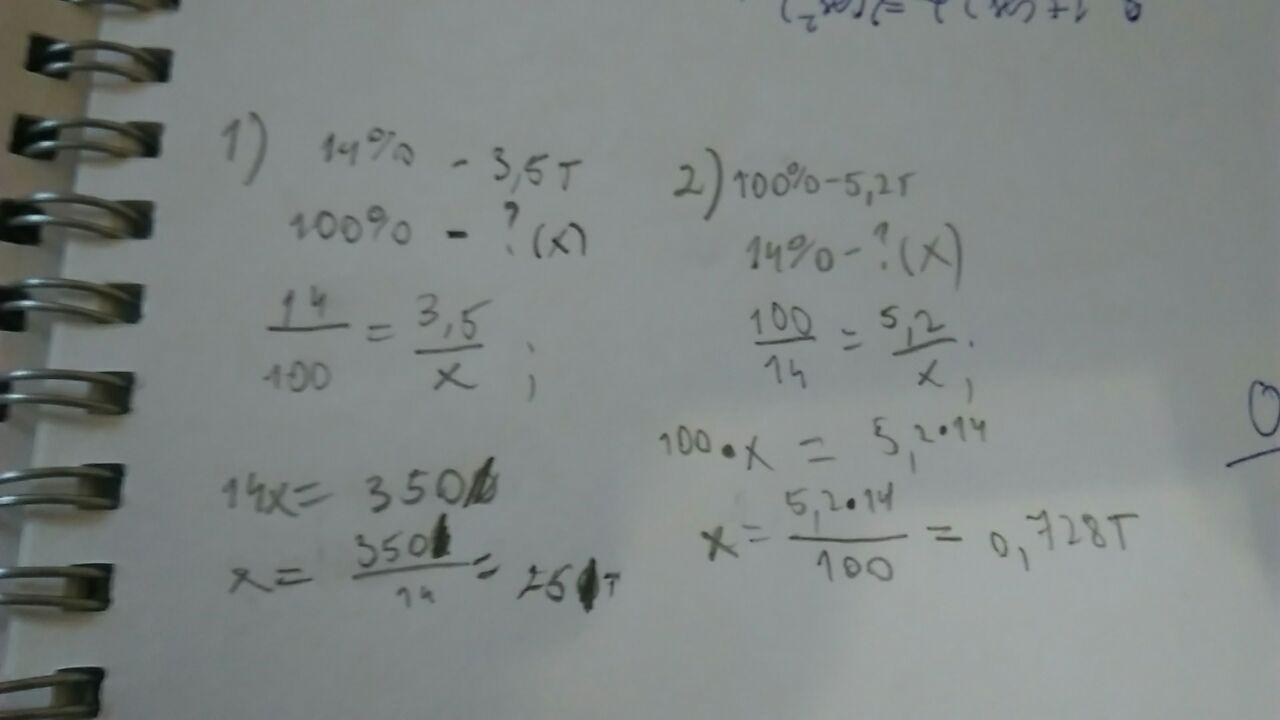 1) 14% - 3,5т
100% - ? (x)
14/100 = 3,5/x ;
14x = 350
x = 350/14 = 25т
2) 100% - 5,2т
14% - ? (x)
100/14 = 5,2/x ;
100 • x = 5,2 • 14
x = 5,2 • 14/100 = 0,728т